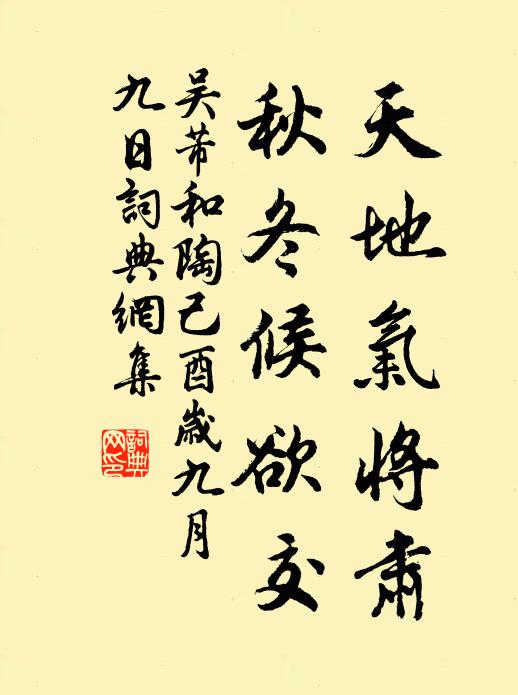 天地氣將肅
秋冬候欲交
吴芾和陶己酉歲九月
九日詞典網集
詞典
网印